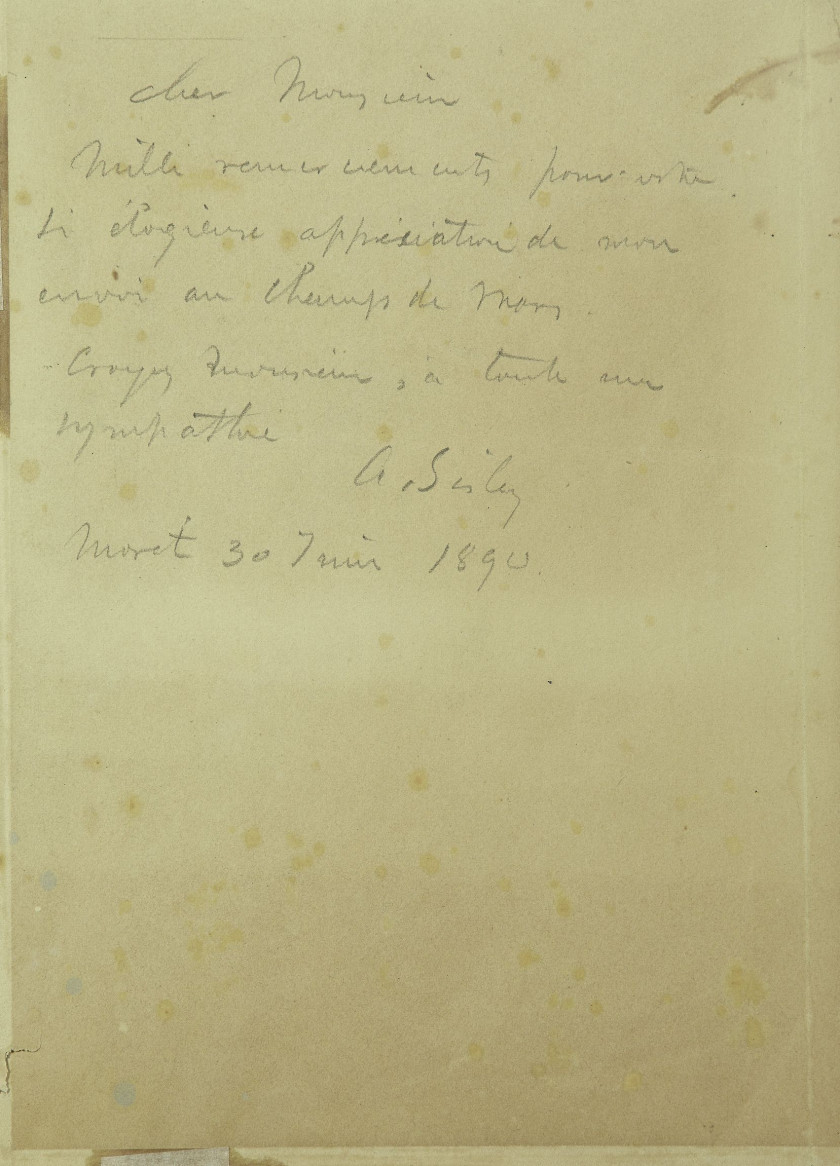 cher Monsieur
Mille remerciements pour votre
si élogieuse appréciation de mon
envoi au Champs de Mars.
Croyez Monsieur, à toute ma
sympathie
A. Sisley
Moret 30 Juin 1890.